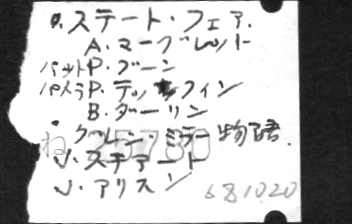 ・ステート・フェア.
A.マーグレット
パットP.ブーン
パメラP.ティフィン
B.ダーリン
・グレン・ミラー物語.
J.ステアート
J.アリスン
681020